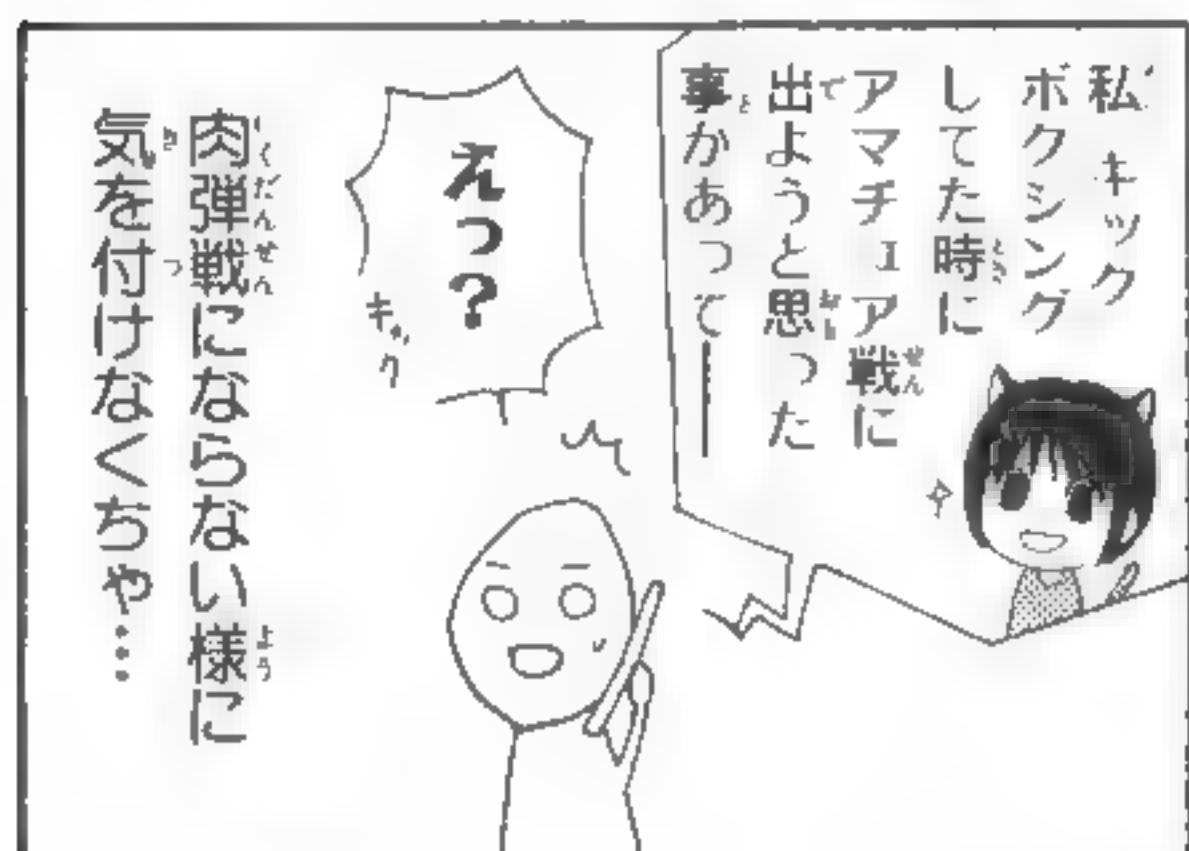 私 キック
ボクシング
してた時に
アマチュア戦に
出ようと思った
事があって――
えっ?
ギック
肉弾戦にならない様に
気を付けなくちゃ…